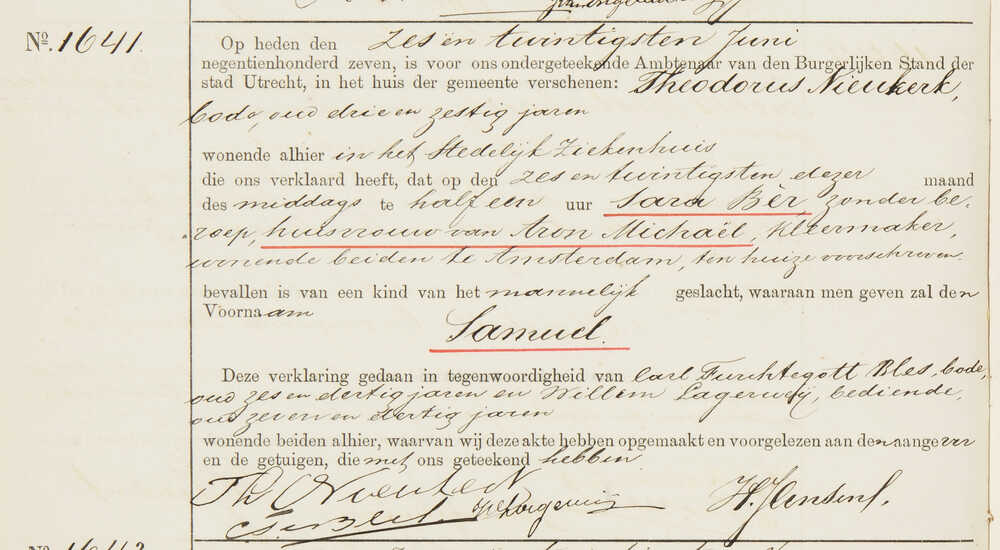 No. 1641.
Op heden den zes en twintigsten Juni
negentienhonderd zeven, is voor ons ondergeteekende Ambtenaar van den Burgerlijken Stand der
stad Utrecht, in het huis der gemeente verschenen: Theodorus Nieukerk,
bode, oud drie en zestig jaren
wonende alhier in het Stedelijk Ziekenhuis
die ons verklaard heeft, dat op den zes en twintigsten dezer maand
des middags te half een uur Sara Bèr, zonder be-
roep, huisvrouw van Aron Michaël, kleermaker,
wonende beiden te Amsterdam, ten huize voorschreven
bevallen is van een kind van het mannelijk geslacht, waaraan men geven zal den
Voornaam
Samuel.
Deze verklaring gedaan in tegenwoordigheid van Carl Furchtegott Bles, bode,
oud zes en dertig jaren en Willem Lagerweij, bediende,
oud zeven en dertig jaren
wonende beiden alhier, waarvan wij deze akte hebben opgemaakt en voorgelezen aan den aangever
en de getuigen, die met ons geteekend hebben.
Th Nieukerk
H. Jensen